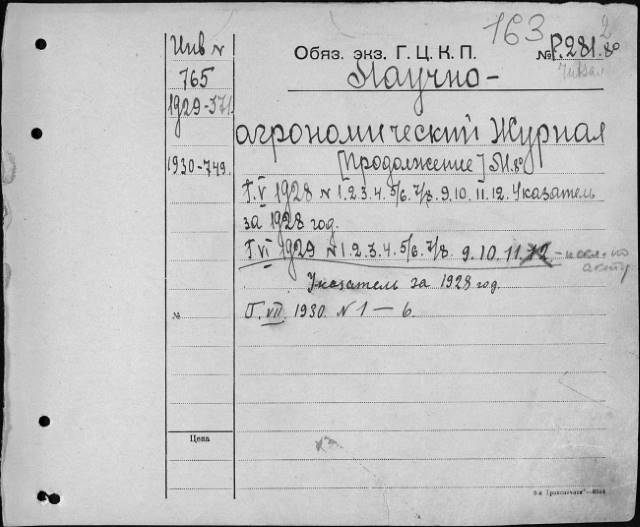 163 2
Инв № Обяз. экз. Г. Ц. К. П. № Р.281.8°
765 Научно-
1929-571
агрономический Журнал
1930-749. [Продолжение] М. 8°
Т. V 1928 № 1. 2. 3. 4. 5/6. 7/8. 9. 10. 11. 12. Указатель
за 1928 год.
Т VI 1929 № 1. 2. 3. 4. 5/6. 7/8. 9. 10. 11. 12 - по
акту
Указатель за 1928 год.
№ Т. VII. 1930. № 1 — 6.
Цена